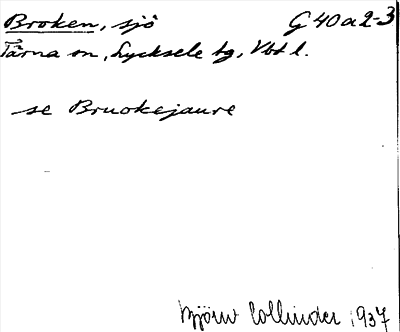 Broken, sjö G 40 a 2-3
Tärna sn, Lycksele tg, Vbt l.
se Bruokejaure
Björn Collinder 1937